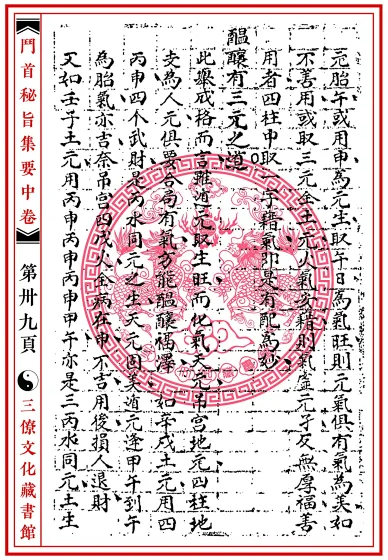 元胎午或用申為元生取午日為氣旺則元氣俱有氣為美如
不善用或取三元全土元火氣亥藉則氣元反無厚福善
用者四柱中取一字藉氣即是有配為妙
醞釀有三元之道
此舉成格而言雖道元取生旺而化氣天元吊宮地元四柱地
支為人元俱要合局有氣方能醞釀福澤 如辛戌土元用四
丙申四个武財是丙水同元之生天元固美道元逢甲午到午
為胎氣亦吉奈吊宮四戊火全病在申不吉用後損人退財
又如壬子土元用丙申丙申丙申甲午亦是三丙水同元土生
鬥首秘旨集要中卷
第卅九頁
三僚文化藏書館